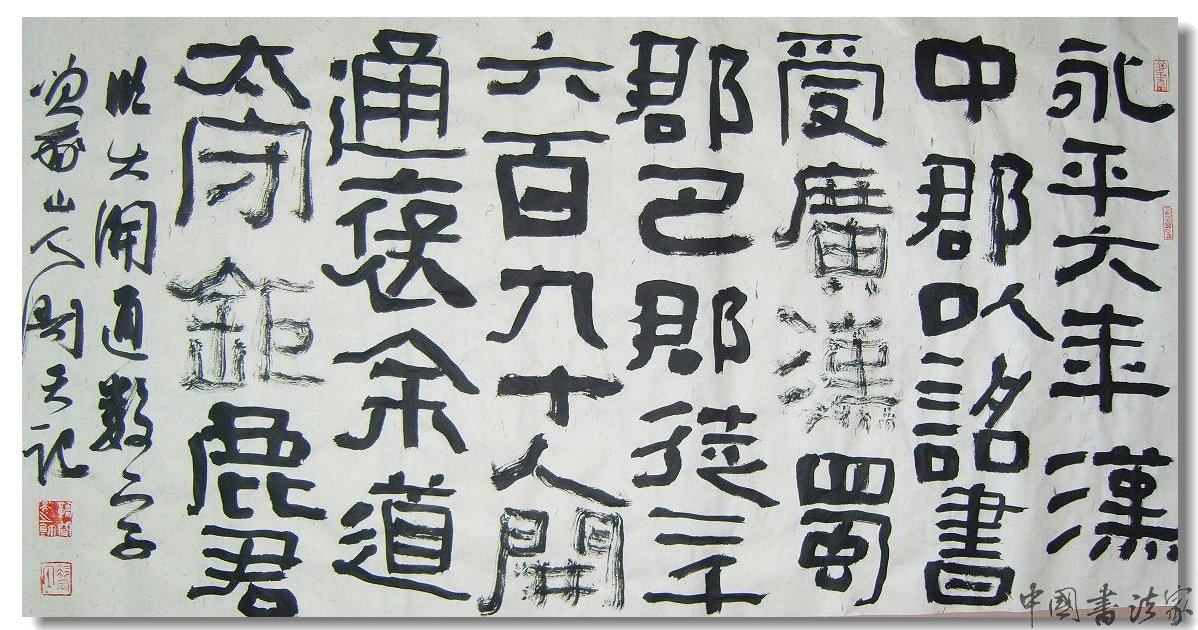 永平六年漢
中郡以詔書
受廣漢蜀
郡巴郡徒二千
六百九十人開
通褒余道
太守鉅鹿君
临大開通数字
山人周天记
中國書法家